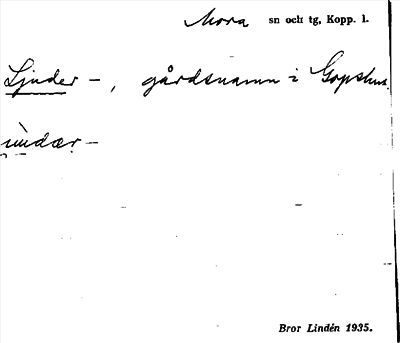 Mora sn och tg, Kopp. l.
Ljuder –, gårdsnamn i Gopshus.
Bror Lindén 1935.